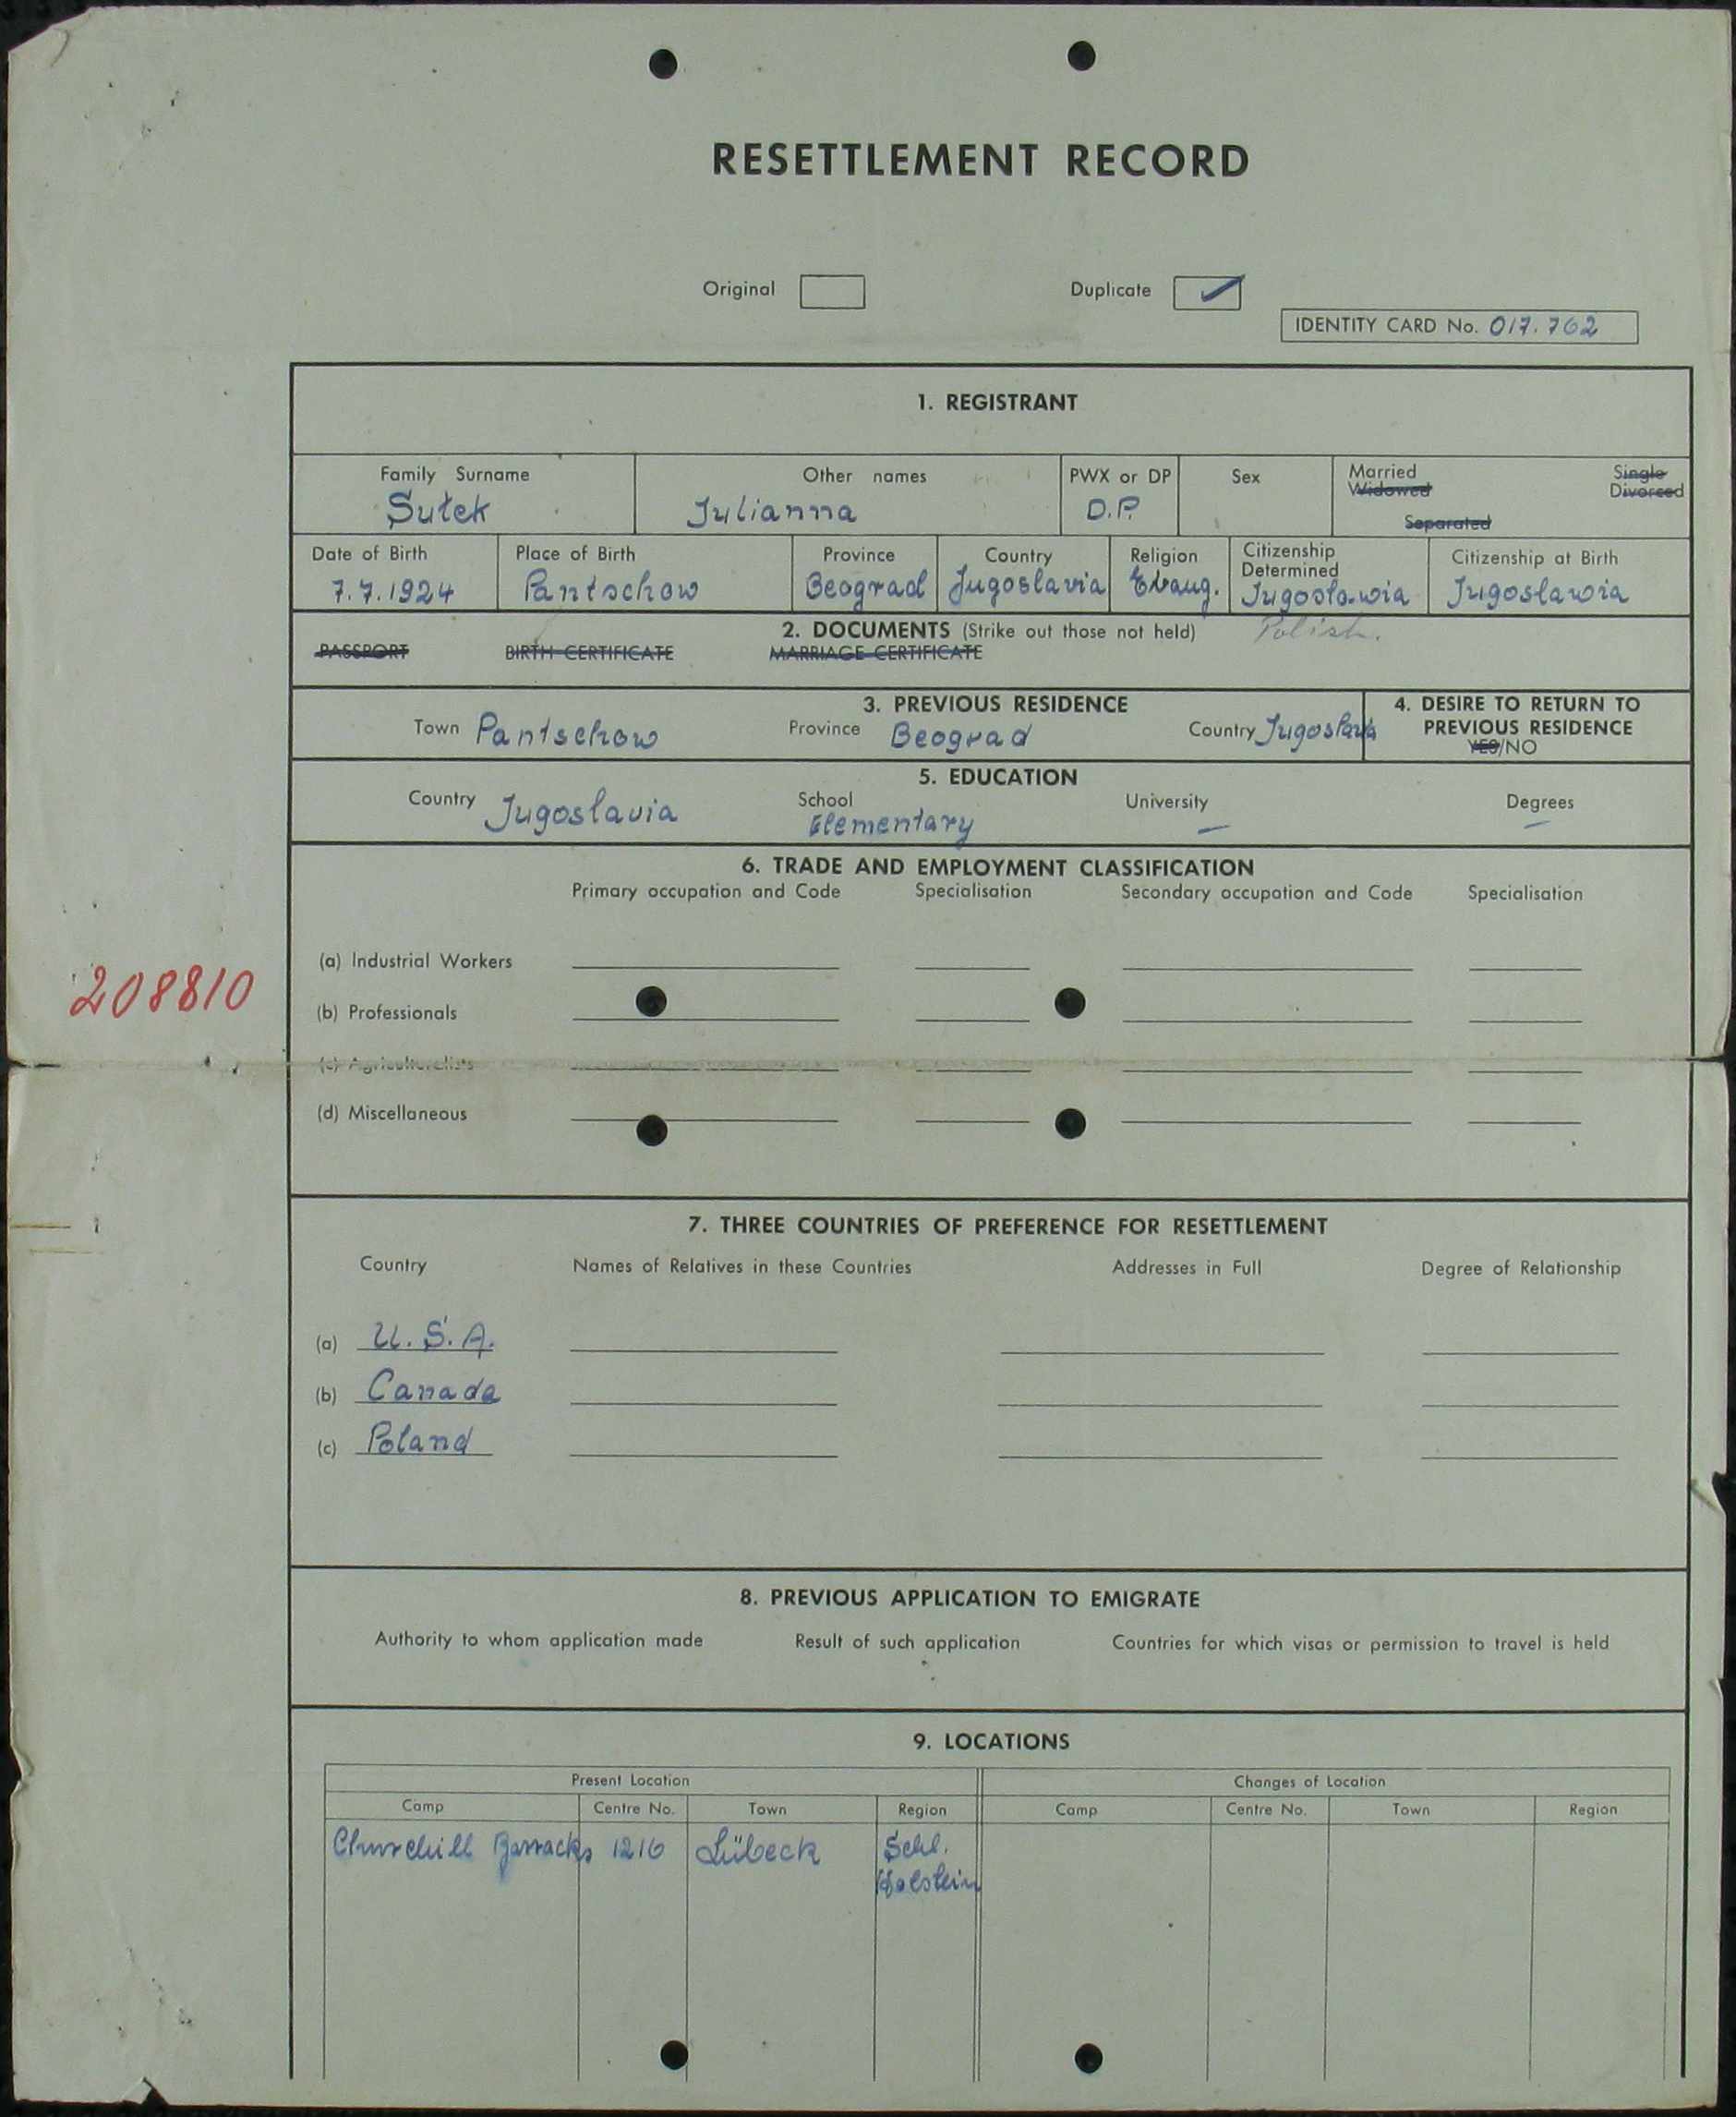 RESETTLEMENT RECORD
Original Duplicate ✓
IDENTITY CARD No. 017.762
1. REGISTRANT
Family Surname Other names PWX or DP Sex Married Single
Widowed Divorced
Separated
Sułek Julianna D.P.
Date of Birth Place of Birth Province Country Religion Citizenship Determined Citizenship at Birth
7.7.1924 Pantschow Beograd Jugoslavia Evang. Jugosławia Jugosławia
2. DOCUMENTS (Strike out those not held) Polish.
PASSPORT BIRTH CERTIFICATE MARRIAGE CERTIFICATE
3. PREVIOUS RESIDENCE
Town Pantschow Province Beograd Country Jugoslavia
4. DESIRE TO RETURN TO
PREVIOUS RESIDENCE
YES/NO
5. EDUCATION
Country Jugoslavia School Elementary University — Degrees —
6. TRADE AND EMPLOYMENT CLASSIFICATION
Primary occupation and Code Specialisation Secondary occupation and Code Specialisation
(a) Industrial Workers
208810
(b) Professionals
(c) Agriculturalists
(d) Miscellaneous
7. THREE COUNTRIES OF PREFERENCE FOR RESETTLEMENT
Country Names of Relatives in these Countries Addresses in Full Degree of Relationship
(a) U.S.A.
(b) Canada
(c) Poland
8. PREVIOUS APPLICATION TO EMIGRATE
Authority to whom application made Result of such application Countries for which visas or permission to travel is held
9. LOCATIONS
Present Location Changes of Location
Camp Centre No. Town Region Camp Centre No. Town Region
Churchill Barracks 1216 Lübeck Schl.
Holstein